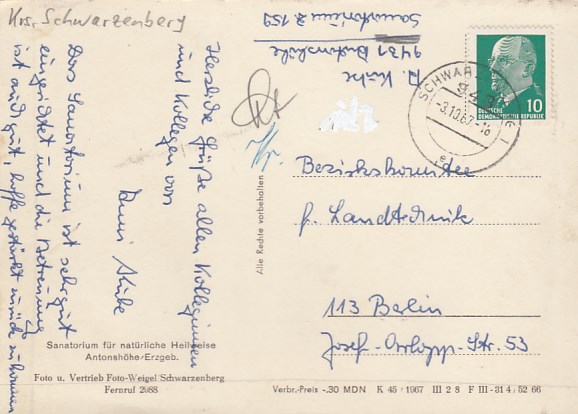 Krs. Schwarzenberg
Sanatorium Z 159
9431 Antonshöhe
Herzliche Grüße allen Kolleginnen
und Kollegen von
Das Sanatorium ist sehr gut
eingerichtet und die Betreuung
ist auch gut, hoffe gestärkt zurück zu kommen
SCHWARZENBERG 1
943
-3.10.67-18
e
10
DEUTSCHE
DEMOKRATISCHE REPUBLIK
Bezirkskomitee
f. Landtechnik
113 Berlin
Josef-Orlopp-Str. 53
Alle Rechte vorbehalten
Sanatorium für natürliche Heilweise
Antonshöhe/Erzgeb.
Foto u. Vertrieb Foto-Weigel/Schwarzenberg
Fernruf 2988
Verbr.-Preis -.30 MDN K 45/1967 III 2 8 F III-31 4/52 66